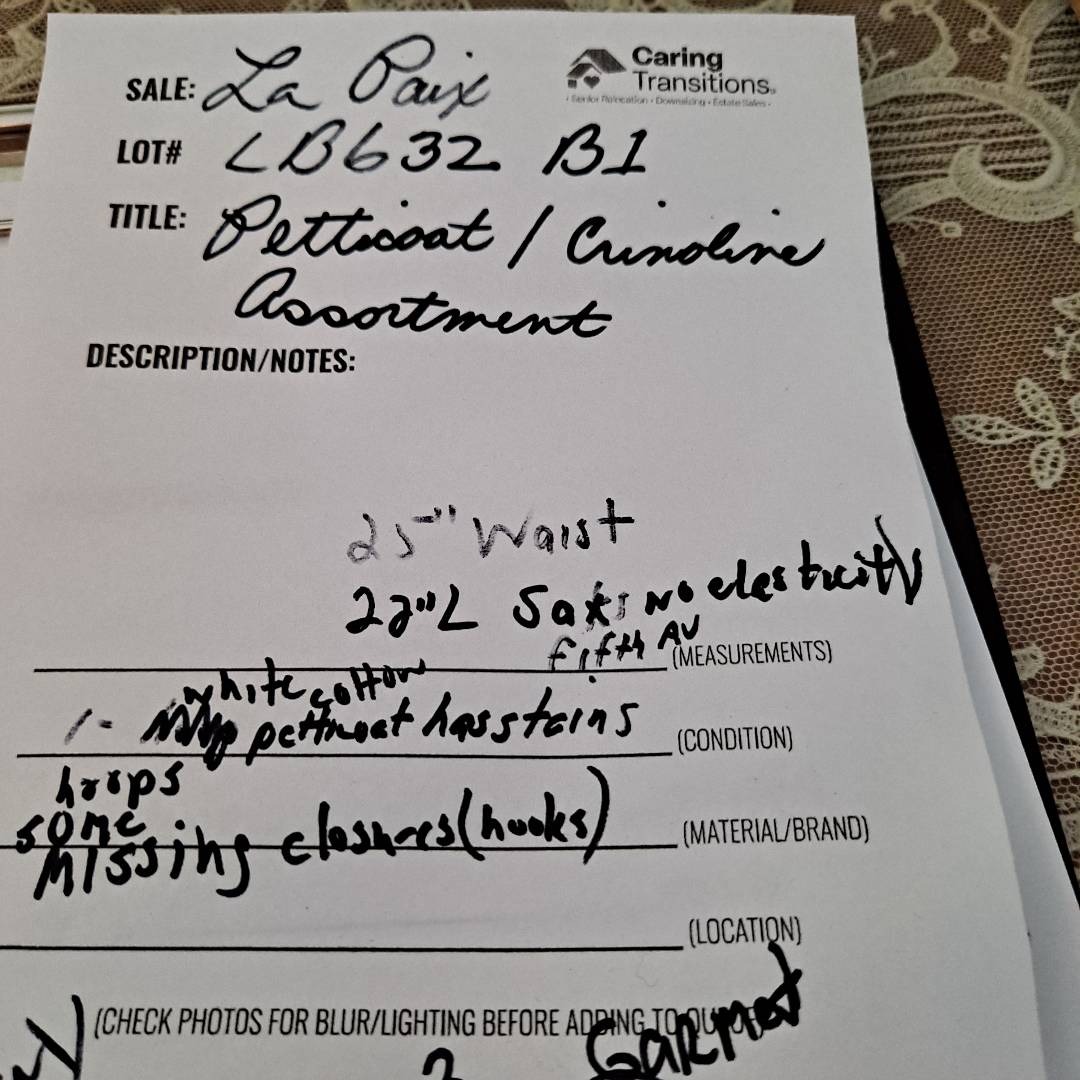 Caring
Transitions
Senior Relocation • Downsizing • Estate Sales
SALE: La Paix
LOT# LB632 B1
TITLE: Petticoat / Crinoline
Assortment
DESCRIPTION/NOTES:
25" Waist
22"L Saks no elasticity
fifth AV (MEASUREMENTS)
white cotton
1- petticoat has stains (CONDITION)
hoops
some
missing closures (hooks) (MATERIAL/BRAND)
(LOCATION)
(CHECK PHOTOS FOR BLUR/LIGHTING BEFORE ADDING TO QUEUE)
GARMENT